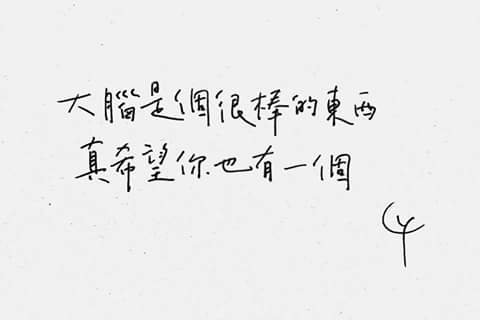 大腦是個很棒的東西
真希望你也有一個